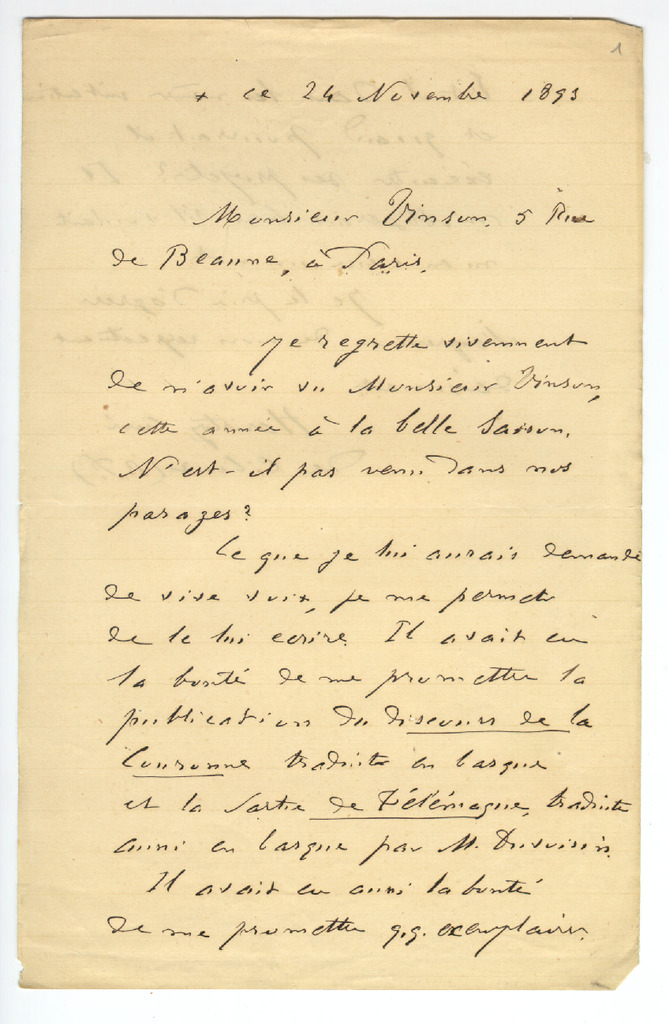 1
+ ce 24 Novembre 1893
Monsieur Vinson, 5 Rue
de Beaune, à Paris.
Je regrette vivement
de n'avoir vu Monsieur Vinson,
cette année à la belle saison.
N'est-il pas venu dans nos
parages?
Ce que je lui aurais demandé
de vive voix, je me permets
de le lui écrire. Il avait eu
la bonté de me promettre la
publication du discours de la
Couronne traduite en basque
et la Sortie de Télémaque, traduite
aussi en basque par M. Duvoisin.
Il avait eu aussi la bonté
de me promettre q.q. exemplaires.